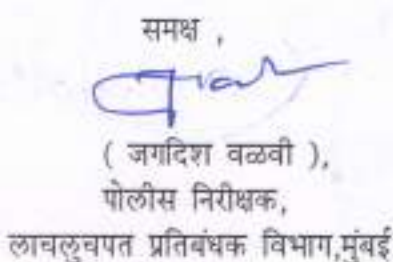 समक्ष ,
( जगदिश वळवी ),
पोलीस निरीक्षक,
लाचलुचपत प्रतिबंधक विभाग,मुंबई